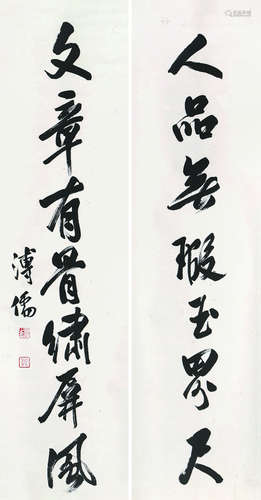 人品無瑕玉界尺
文章有骨繡屏風
溥儒